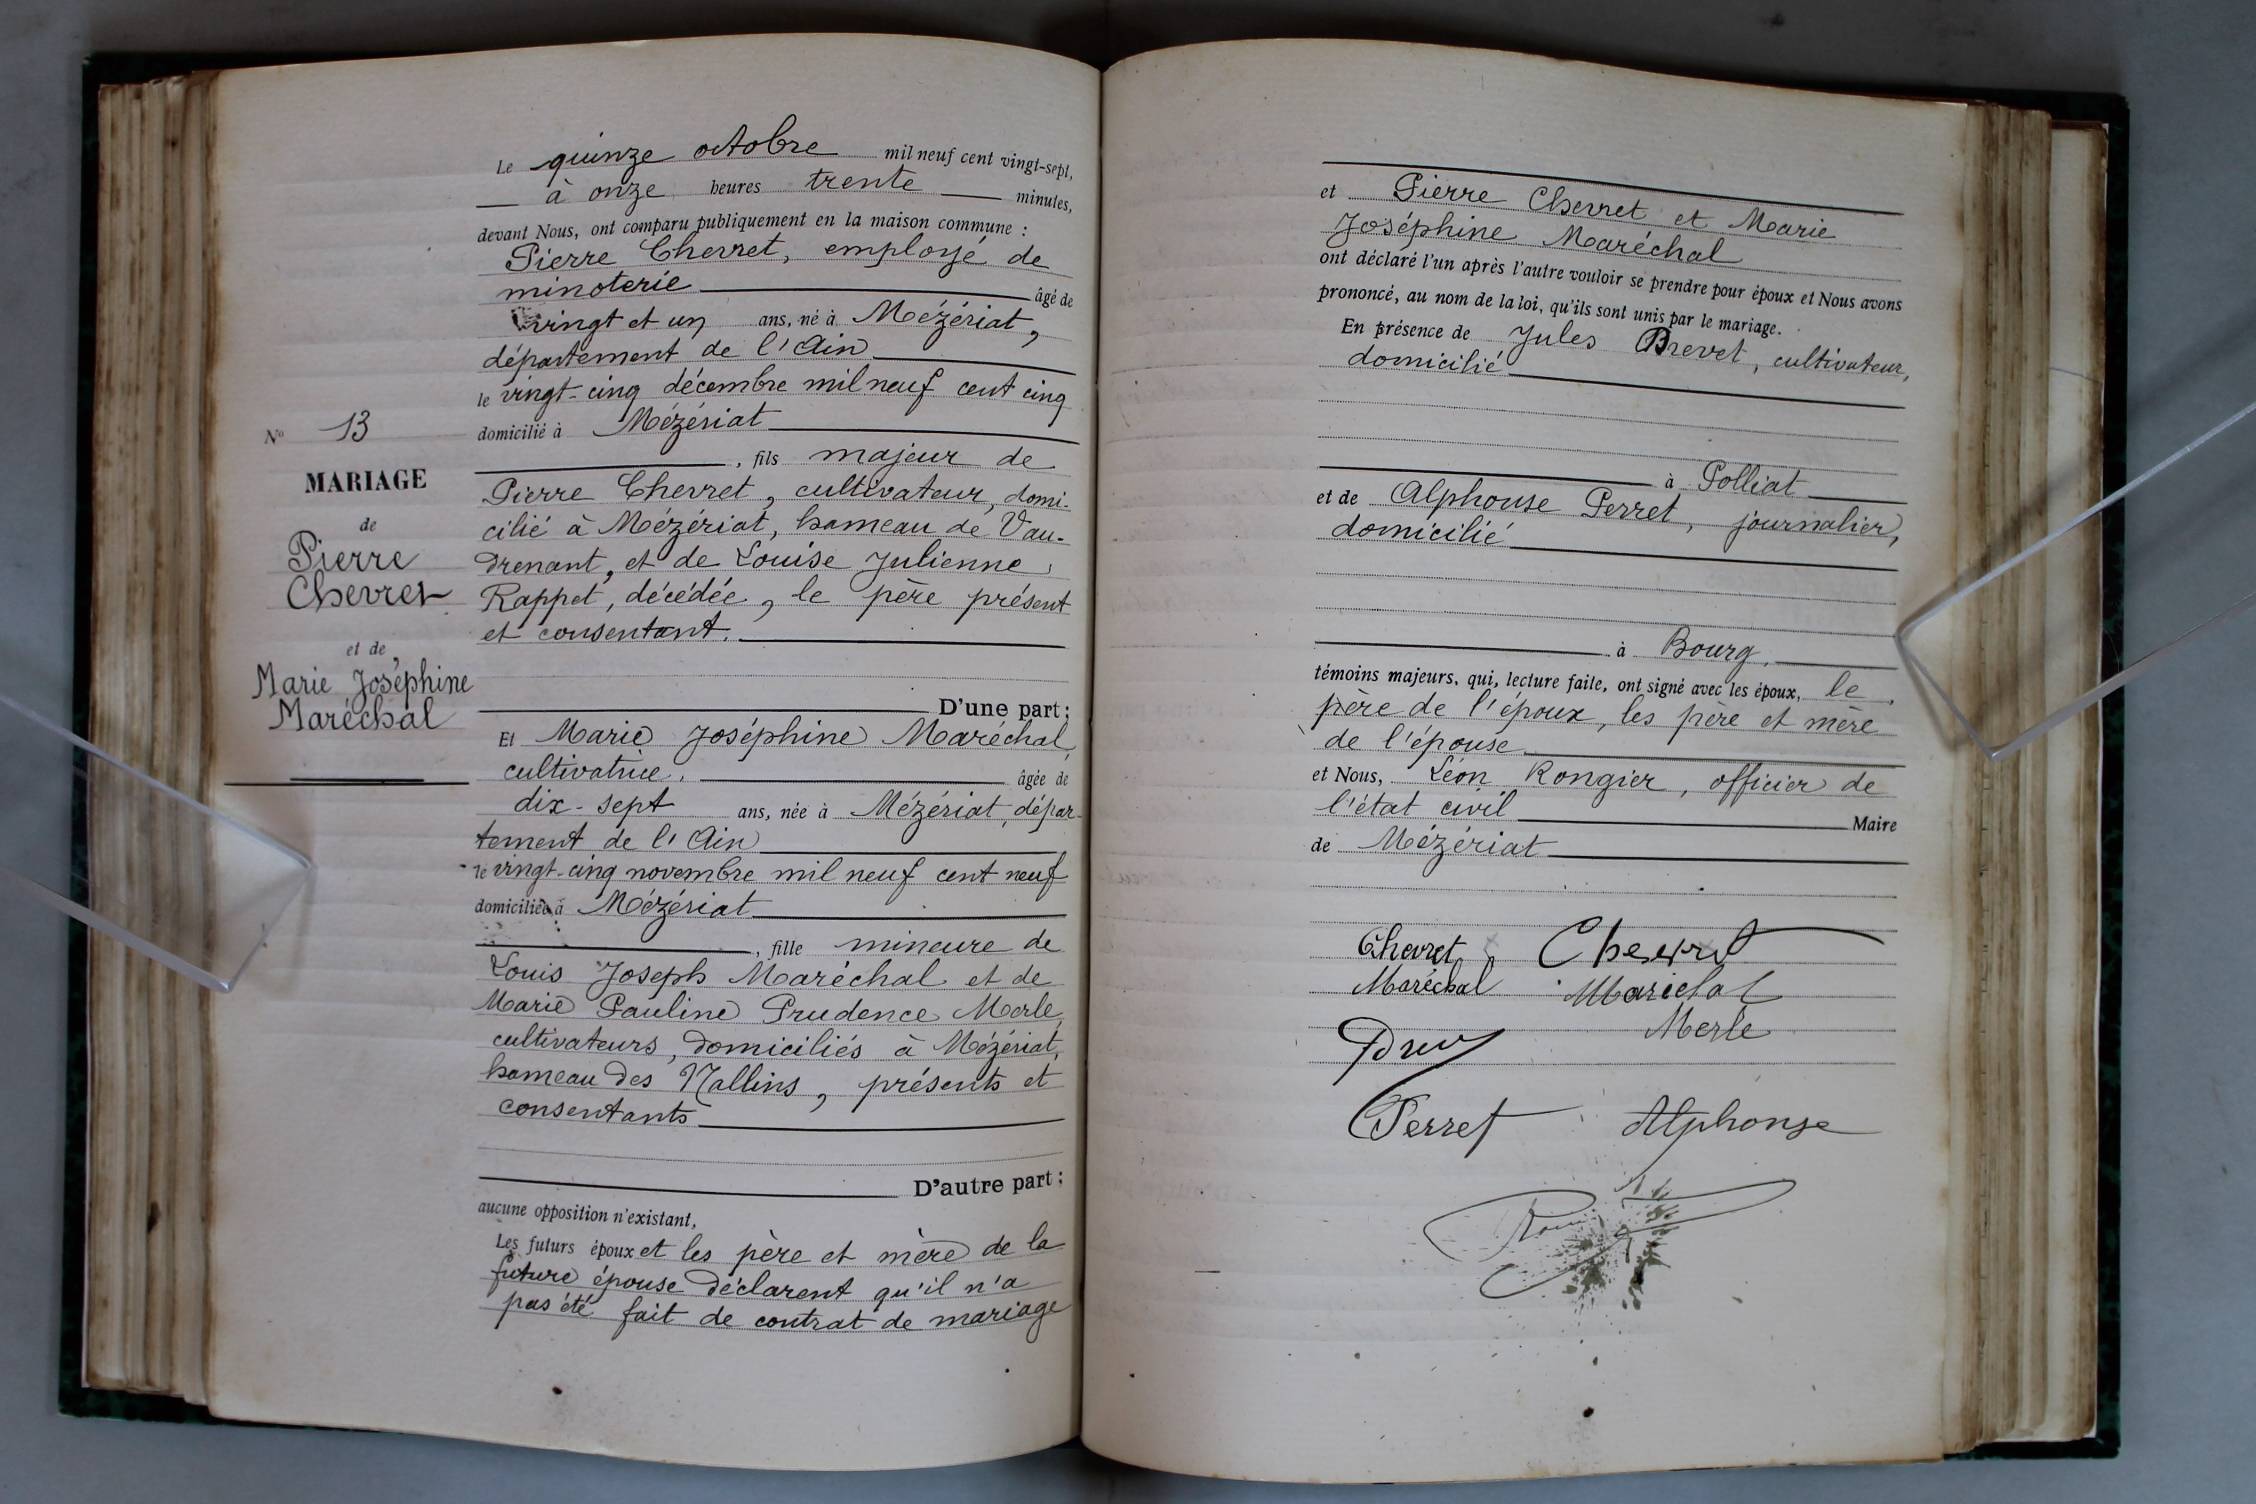 Le quinze octobre mil neuf cent vingt-sept,
à onze heures trente minutes,
devant Nous, ont comparu publiquement en la maison commune :
Pierre Chevret, employé de
minoterie âgé de
vingt et un ans, né à Mézériat,
département de l'Ain
le vingt-cinq décembre mil neuf cent cinq
domicilié à Mézériat
, fils majeur de
Pierre Chevret, cultivateur, domi-
cilié à Mézériat, hameau de Vau-
drenant, et de Louise Julienne
Rappet, décédée, le père présent
et consentant.
D'une part ;
Et Marie Joséphine Maréchal,
cultivatrice, âgée de
dix-sept ans, née à Mézériat, dépar-
tement de l'Ain
le vingt-cinq novembre mil neuf cent neuf
domiciliée à Mézériat
, fille mineure de
Louis Joseph Maréchal et de
Marie Pauline Prudence Merle,
cultivateurs, domiciliés à Mézériat,
hameau des Nallins, présents et
consentants
D'autre part ;
aucune opposition n'existant,
Les futurs époux et les père et mère de la
future épouse déclarent qu'il n'a
pas été fait de contrat de mariage
No 13
MARIAGE
de
Pierre
Chevret
et de
Marie Joséphine
Maréchal
et Pierre Chevret et Marie
Joséphine Maréchal
ont déclaré l'un après l'autre vouloir se prendre pour époux et Nous avons
prononcé, au nom de la loi, qu'ils sont unis par le mariage.
En présence de Jules Brevet, cultivateur,
domicilié
à Polliat
et de Alphonse Perret, journalier,
domicilié
à Bourg,
témoins majeurs, qui, lecture faite, ont signé avec les époux, le
père de l'époux, les père et mère
de l'épouse
et Nous, Léon Rongier, officier de
l'état civil Maire
de Mézériat
Chevret Chevret
Maréchal Maréchal
Merle
Perret Alphonse